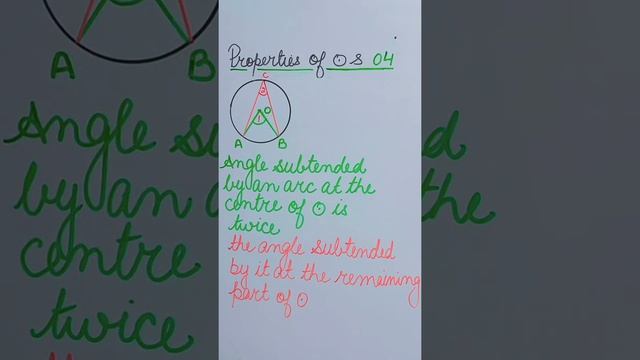 Properties of ⊙s 04
C
2
O
1
A B
Angle subtended
by an arc at the
centre of ⊙ is
twice
the angle subtended
by it at the remaining
part of ⊙
A B
Angle su
by an
centre
twice
the